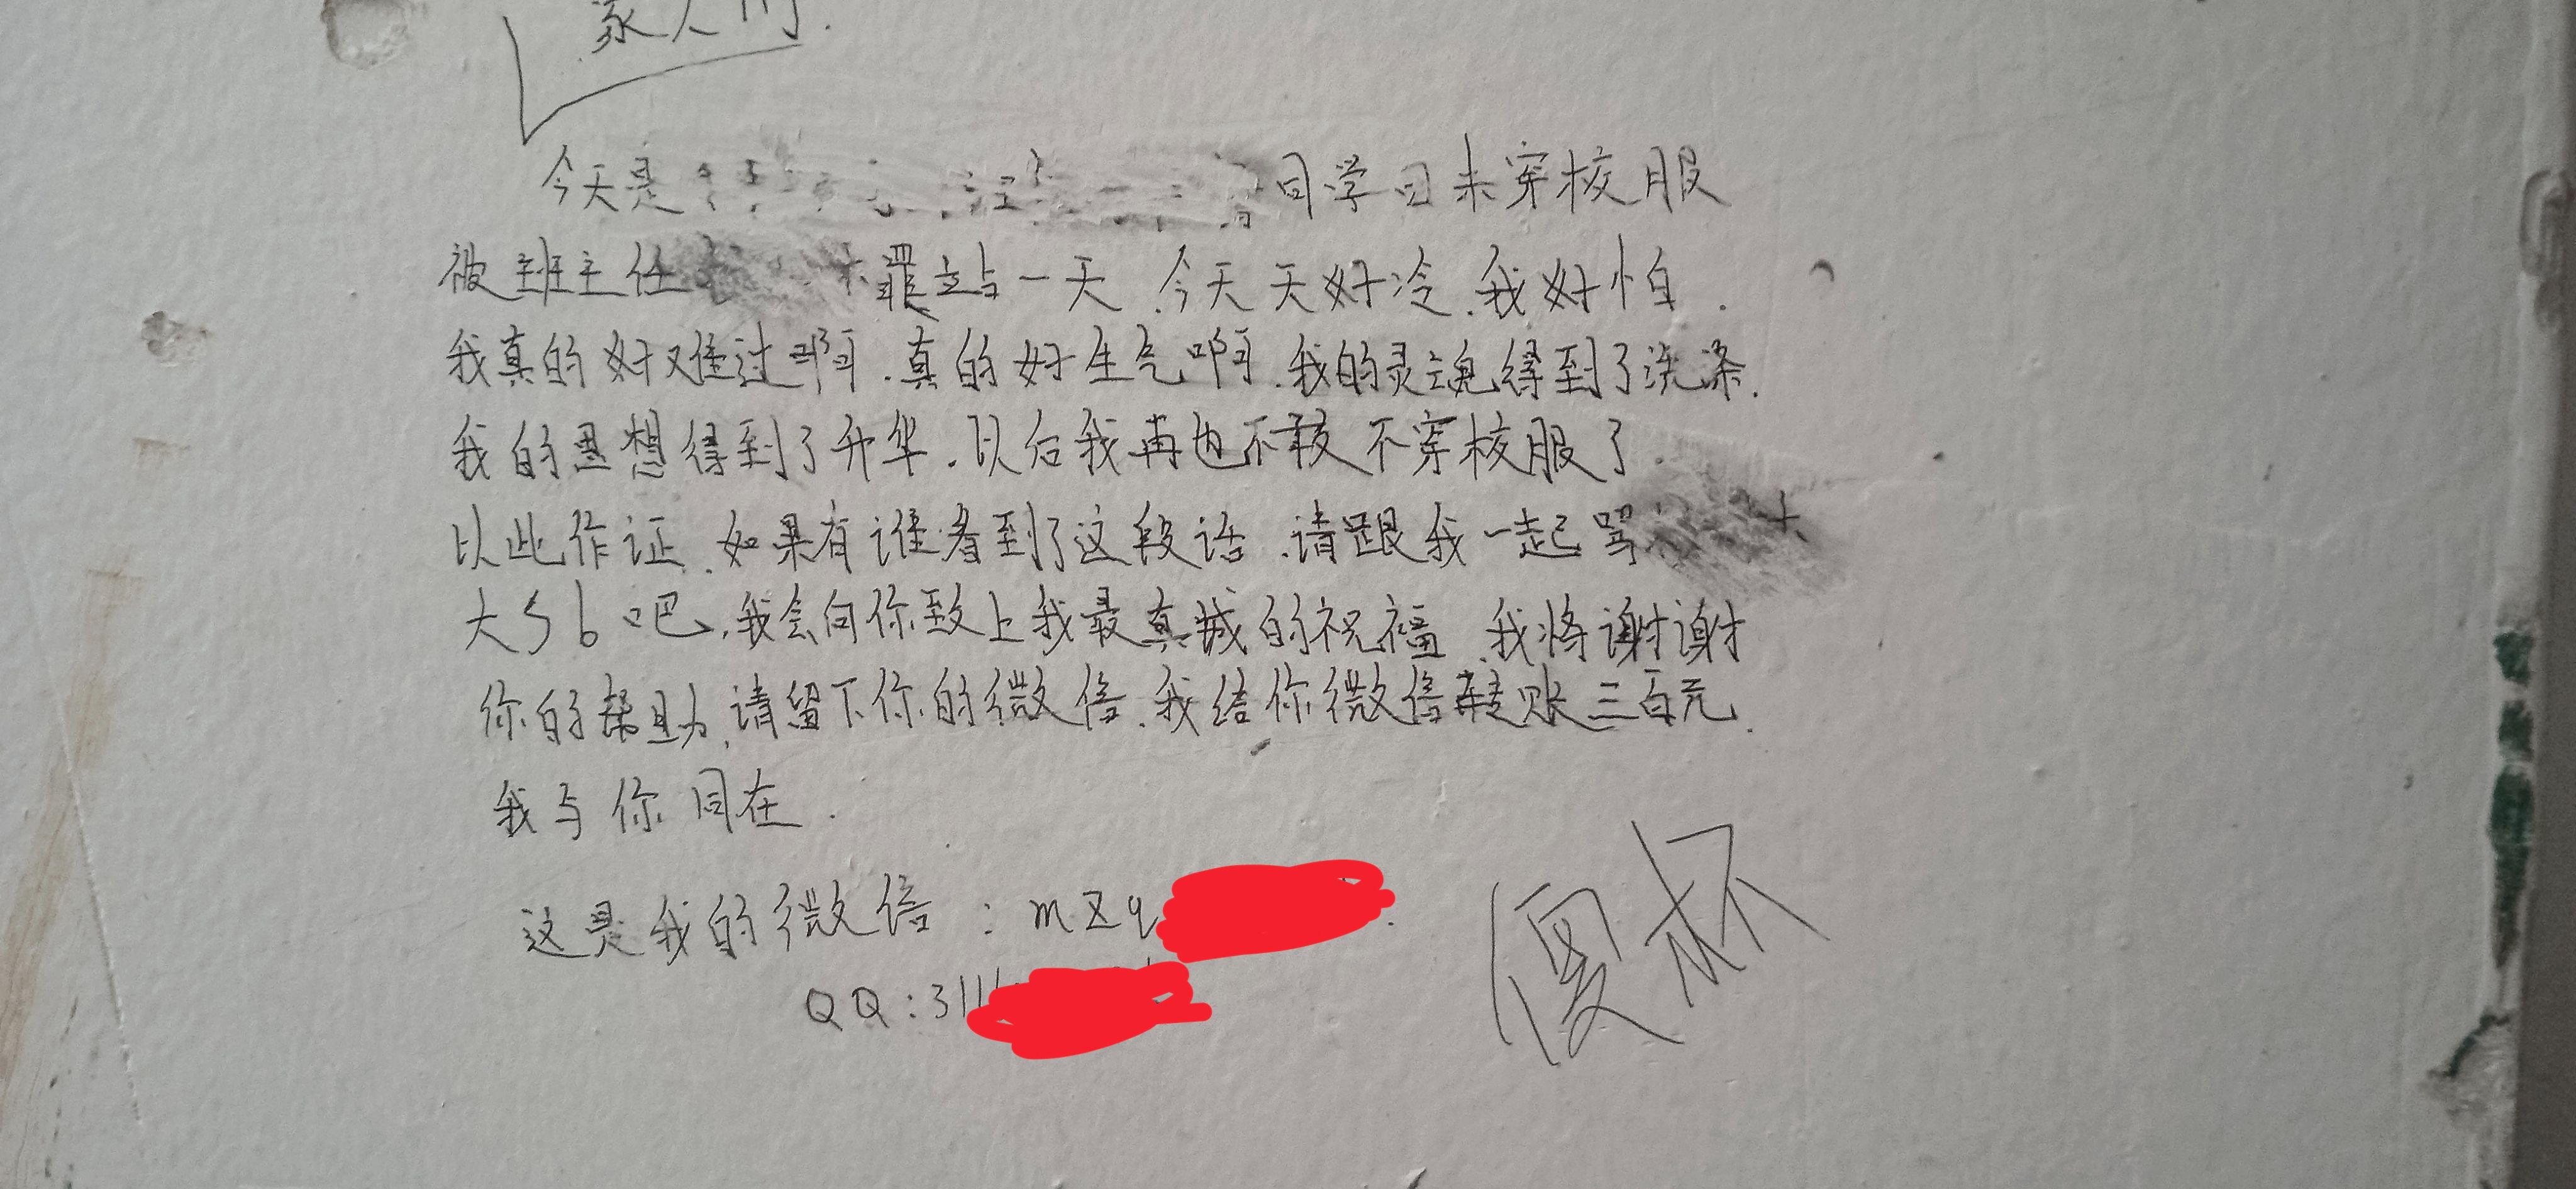 家人们.
今天是 同学因未穿校服
被班主任 罪站一天.今天天好冷.我好怕.
我真的好难过啊.真的好生气啊.我的灵魂得到了洗涤.
我的思想得到了升华.以后我再也不敢不穿校服了.
以此作证.如果有谁看到了这段话.请跟我一起骂
大Sb吧.我会向你致上我最真诚的祝福.我将谢谢
你的帮助,请留下你的微信.我给你微信转账三百元.
我与你同在.
这是我的微信:mzq
QQ:311